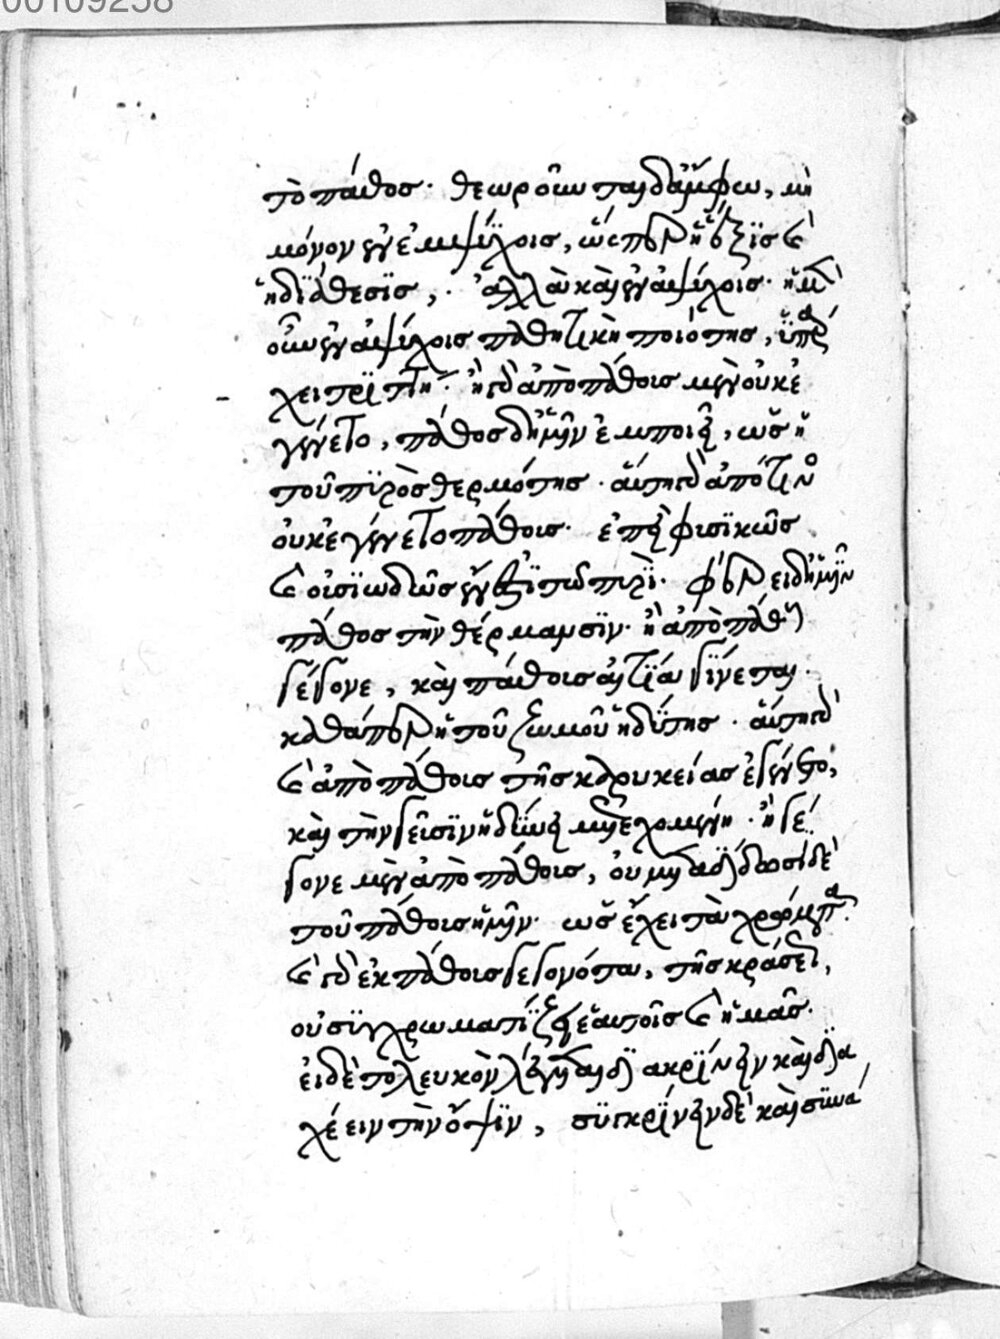 00109258
τὸ πάθος. θεωροῦνται δ' ἄμφω, μὴ
μόνον ἐν ἐμψύχοις, ὥσπερ ἡ ἕξις καὶ
ἡ διάθεσις, ἀλλὰ καὶ ἐν ἀψύχοις. ἡ μὲν
οὖν ἐν ἀψύχοις παθητικὴ ποιότης, ὑπάρ
χει τριττή. ἢ γὰρ ἀπὸ πάθους μὲν οὐκ ἐ
γένετο, πάθος δ' ἡμῖν ἐμποιεῖ, ὡς ἡ
τοῦ πυρὸς θερμότης. αὕτη γὰρ ἀπό τινος
οὐκ ἐγένετο πάθους. ἐπεὶ φυσικῶς
καὶ οὐσιωδῶς ἔνεστι τῷ πυρί. φέρει δ' ἡμῖν
πάθος τὴν θέρμανσιν. ἢ ἀπὸ πάθους
γέγονε, καὶ πάθους αἰτία γίνεται.
καθάπερ ἡ τοῦ ζωμοῦ ἡδύτης. αὕτη γὰρ
καὶ ἀπὸ πάθους τῆς καρυκείας ἐγένετο,
καὶ τὴν γεῦσιν ἡδύνει μετεχομένη. ἢ γέ
γονε μὲν ἀπὸ πάθους, οὐ μεταδίδωσι δὲ
τοῦ πάθους ἡμῖν. ὡς ἔχει τὰ χρώματα.
καὶ γὰρ ἐκ πάθους γεγονότα, τῆς κράσεως,
οὐ συγχρωματίζει ἑαυτοῖς καὶ ἡμᾶς.
εἰ δὲ τὸ λευκὸν λέγεται διακρίνειν καὶ δια
χέειν τὴν ὄψιν, συγκρίνειν δὲ καὶ συνά